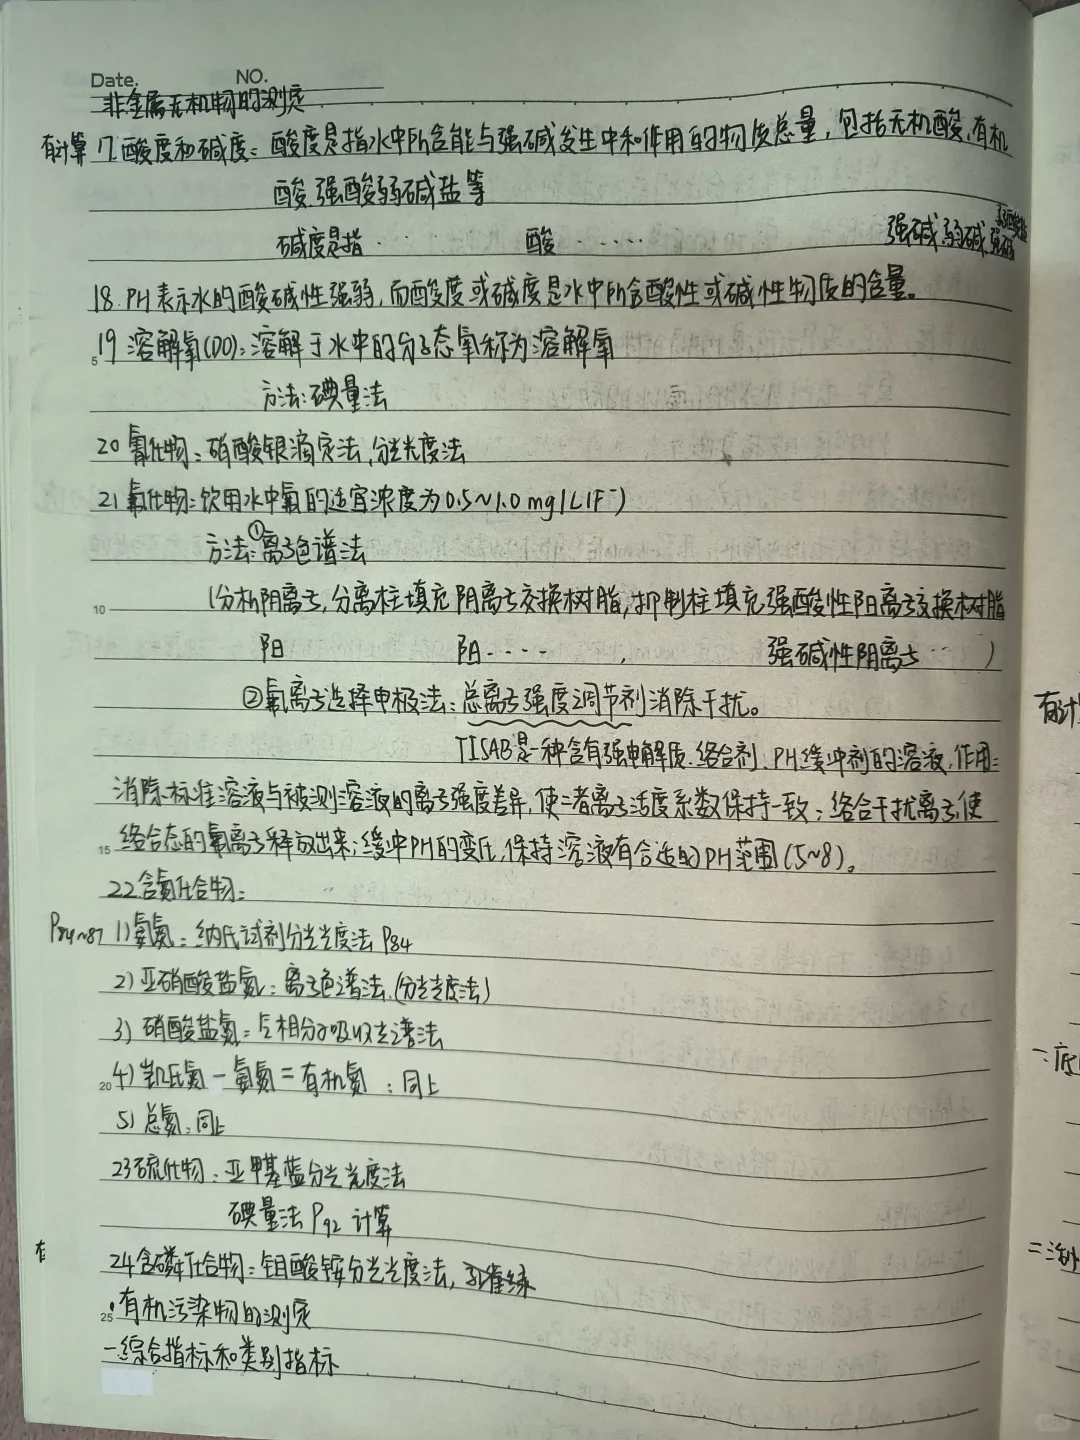 Date. NO.
非金属无机物的测定
有计算 17.酸度和碱度：酸度是指水中所含能与强碱发生中和作用的物质总量，包括无机酸、有机
酸、强酸弱碱盐等
碱度是指…… 酸…… 强碱、弱碱、强碱
18. PH表示水的酸碱性强弱，而酸度或碱度是水中所含酸性或碱性物质的含量。
5 19 溶解氧(DO)：溶解于水中的分子态氧称为溶解氧
方法：碘量法
20 氰化物：硝酸银滴定法、分光光度法
21 氟化物：饮用水中氟的适宜浓度为0.5~1.0mg/L(F⁻)
方法：①离子色谱法
10 (分析阴离子，分离柱填充阴离子交换树脂，抑制柱填充强酸性阳离子交换树脂
阳 阳…… ， 强碱性阴离子…)
②氟离子选择电极法：总离子强度调节剂消除干扰。
TISAB是一种含有强电解质、络合剂、PH缓冲剂的溶液，作用：
消除标准溶液与被测溶液的离子强度差异，使二者离子活度系数保持一致；络合干扰离子，使
15 络合态的氟离子释放出来；缓冲PH的变化，保持溶液有合适的PH范围(5~8)。
22 含氮化合物：
P84~87 1)氨氮：纳氏试剂分光光度法 P84
2)亚硝酸盐氮：离子色谱法、(分光光度法)
3) 硝酸盐氮：气相分子吸收光谱法
20 4)凯氏氮－氨氮＝有机氮：同上
5)总氮：同上
23 硫化物：亚甲基蓝分光光度法
碘量法 P92 计算
24 含磷化合物：钼酸铵分光光度法，孔雀绿
25 有机污染物的测定
一综合指标和类别指标
有计
一：底
二：